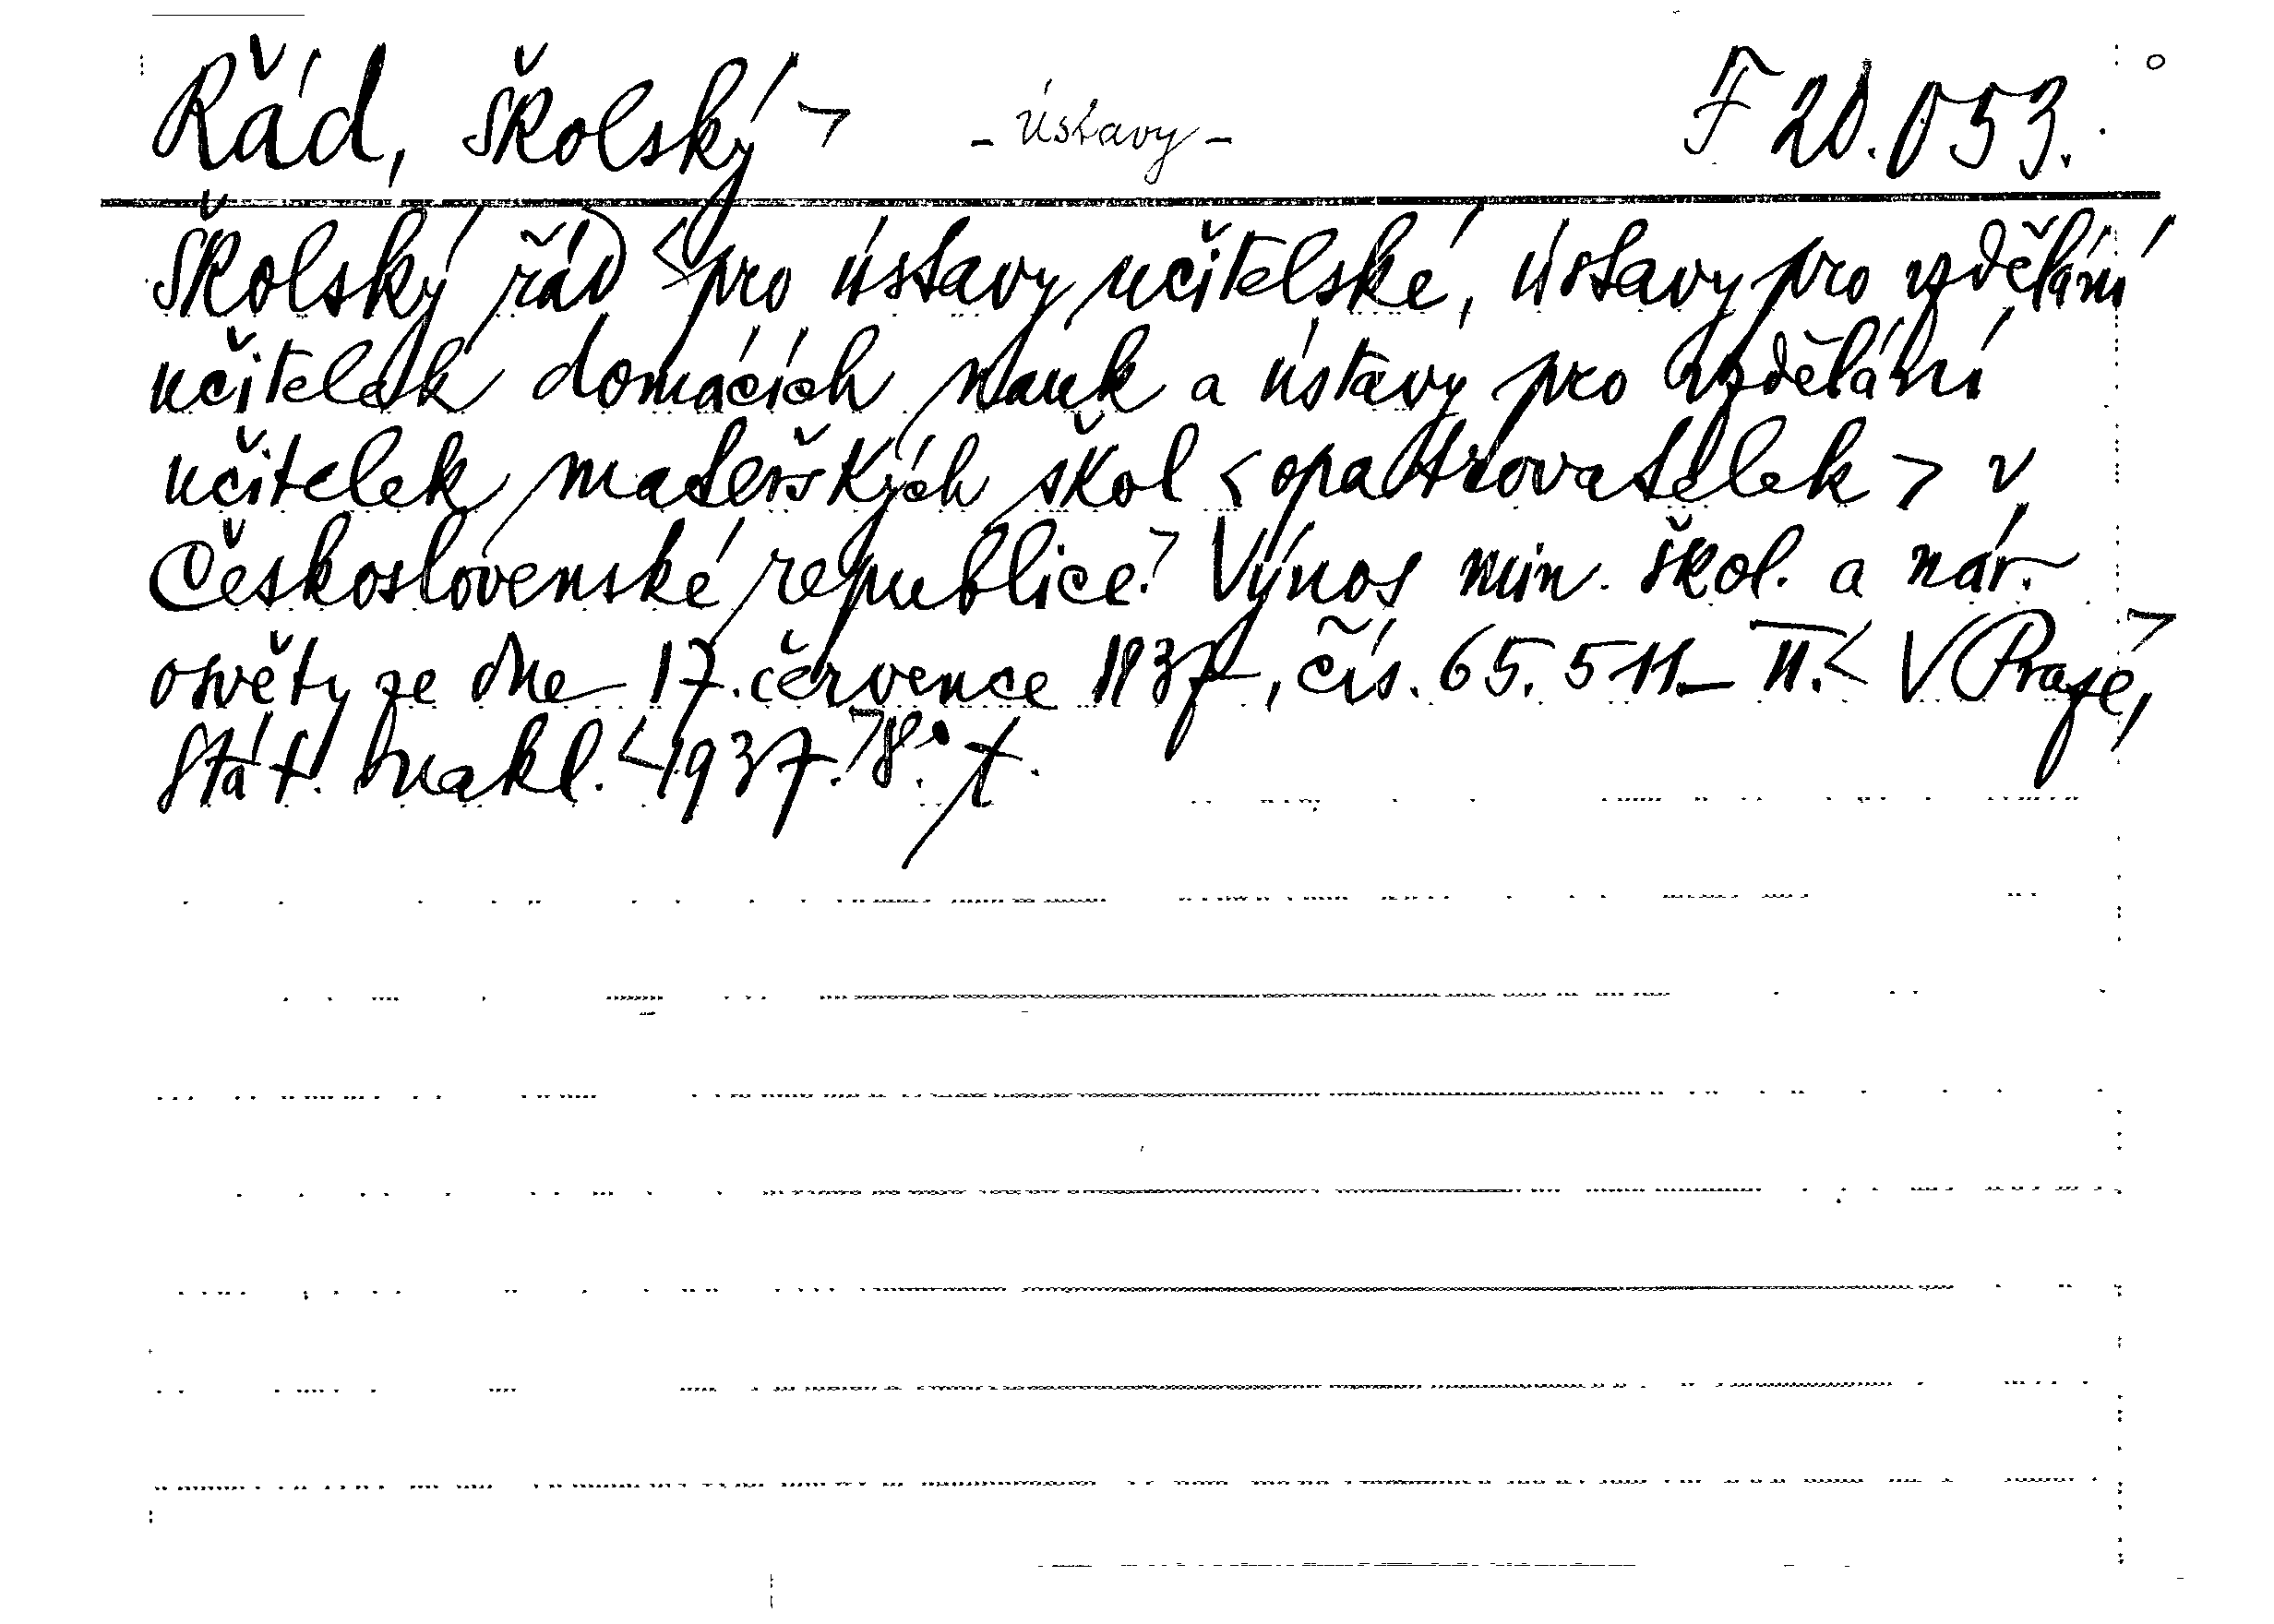 Řád, školský > - ústavy - F 20.053.
Školský řád < pro ústavy učitelské, ústavy pro vzdělání
učitelek domácích nauk a ústavy pro vzdělání
učitelek mateřských škol < opatrovatelek > v
Československé republice.> Výnos min. škol. a nár.
osvěty ze dne 17. července 1937, čís. 65.511-II.< V Praze,>
Stát. nakl. < 1937.> 8°. t.